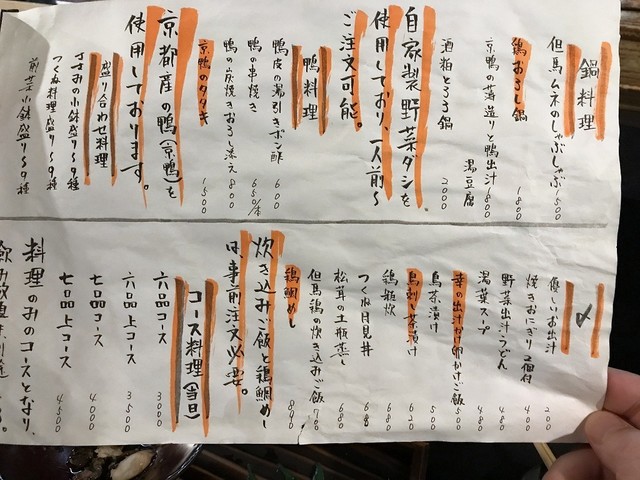 鍋料理
但馬ムネのしゃぶしゃぶ 1500
鶏おろし鍋 1800
京鴨の薄造りと鴨出汁 1800
湯豆腐
酒粕とろろ鍋 2000
自家製野菜ダシを
使用しており、一人前〜
ご注文可能。
鴨料理
鴨皮の湯引きポン酢 600
鴨の串焼き 650/本
鴨の炭焼きおろし添え 800
京鴨のタタキ 1500
京都産の鴨(京鴨)を
使用しております。
盛り合わせ料理
ささみの小鉢盛り5〜9種
つくね料理盛り5〜9種
前菜小鉢盛り5〜9種
〆
優しいお出汁 200
焼きおにぎり 2個付
野菜出汁うどん 480
湯葉スープ 480
幸の出汁かけ卵かけご飯 550
鳥茶漬け 500
鳥刺し茶漬け 600
鶏雑炊 680
つくね月見丼 680
松茸の土瓶蒸し 680
但馬鶏の炊き込みご飯 700
鶏鯛めし 800
炊き込みご飯と鶏鯛めし
は、事前注文必要。
コース料理(当日)
六品コース 3000
六品上コース 3500
七品コース 4000
七品上コース 4500
料理のみのコースとなり、